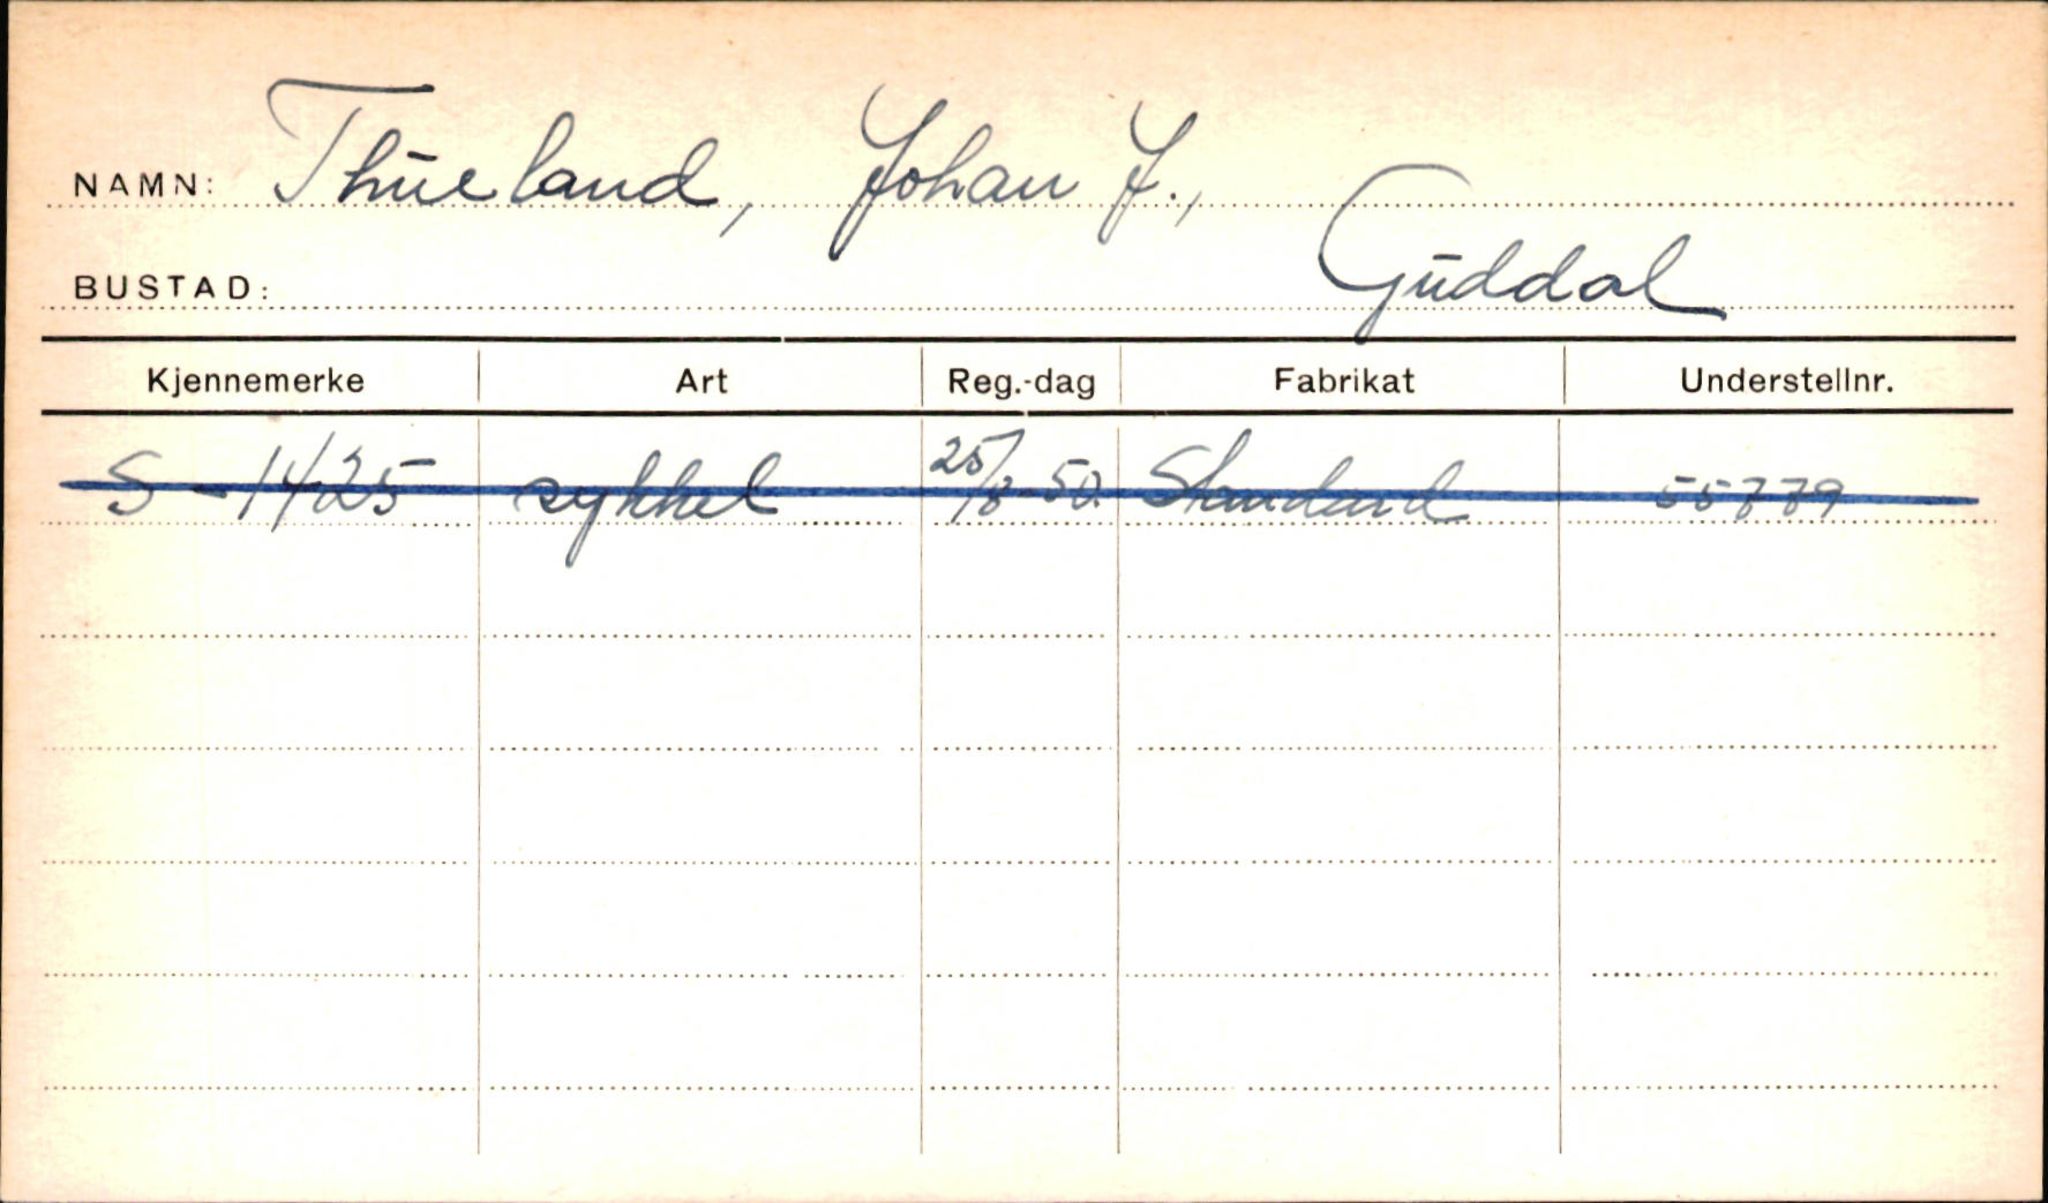 NAMN: Thueland, Johan J.,
BUSTAD: Guddal
Kjennemerke Art Reg.-dag Fabrikat Understellnr.
S - 1425 sykkel 25/8-50. Standard 55779